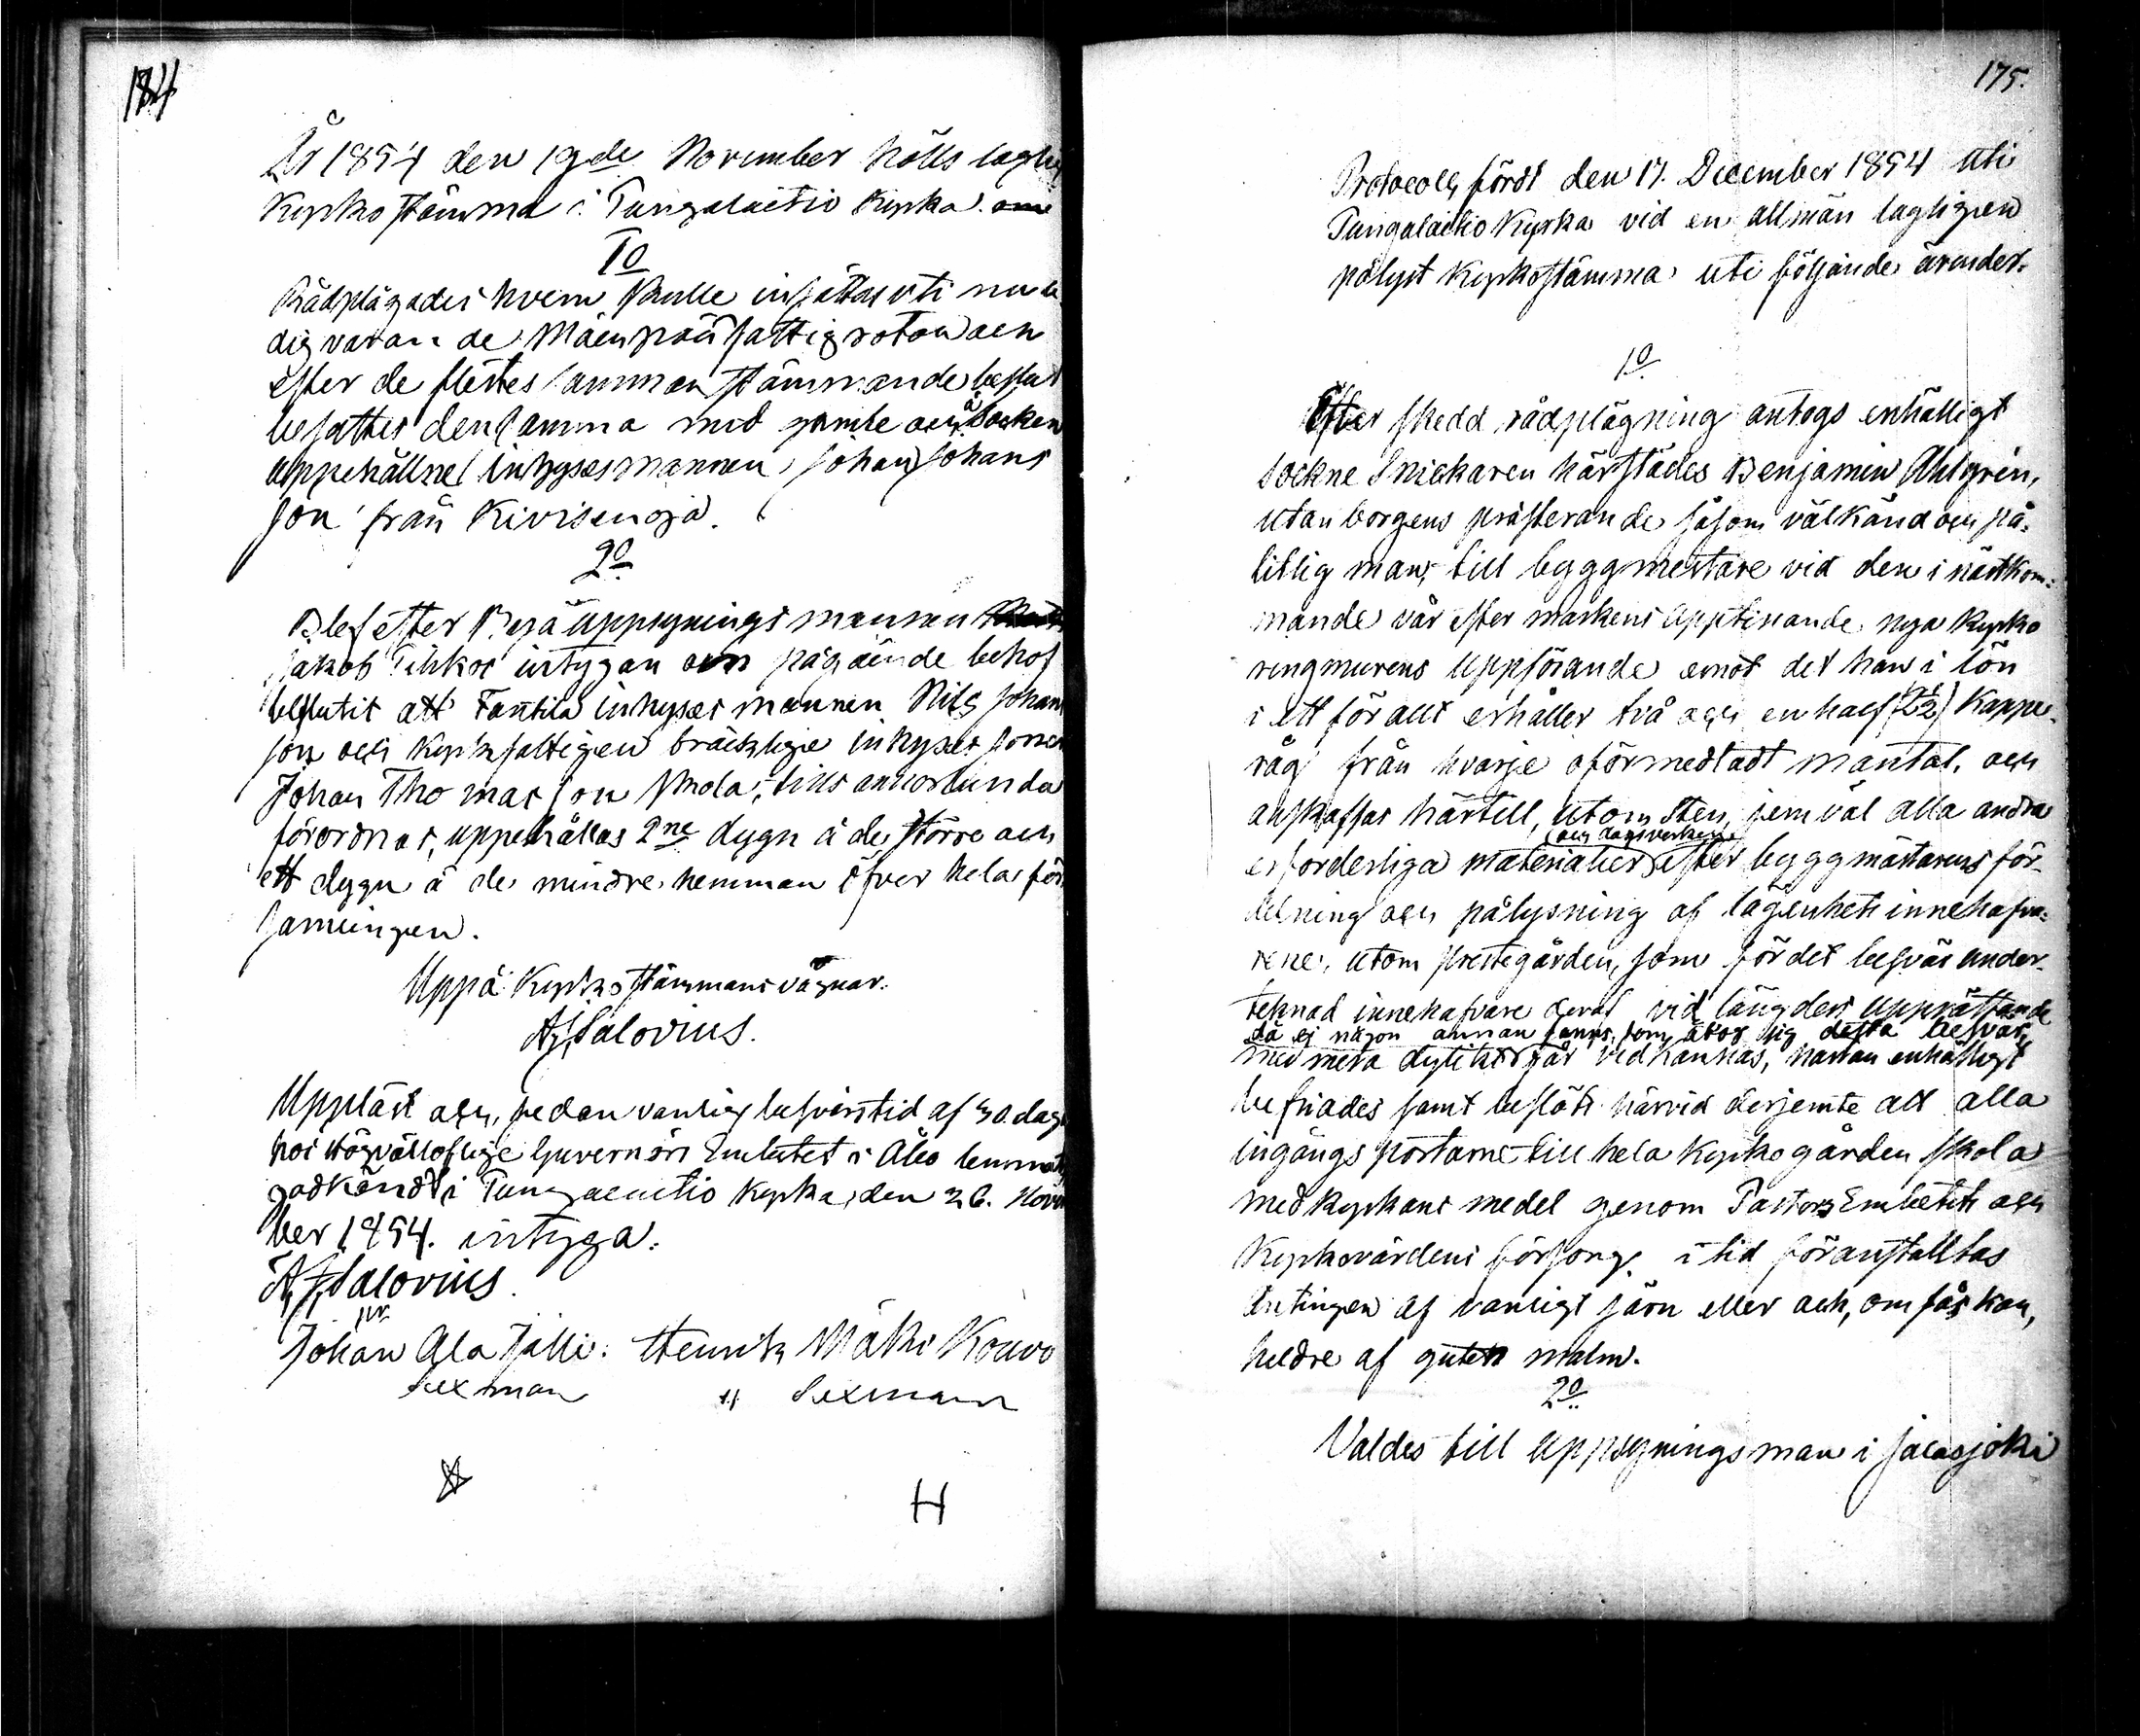 184
År 1854 den 19de November hölls laglig
Kyrkostämma i Tungalaitio Kyrka.
1o
Rådplägades hvem skulle insättas uti nu le
dig varan de Mäenpää fattigrotan och
efter de flestes samman stämmande beslut
besattes densamma med gamle och å Socken
uppehållne inhysesmannen Johan Johans
son från Kivisenoja.
2o
Blef efter Byå uppsyningsmannen
Jakob intygan om pågående behof
beslutit att Tanttila inhyses mannen Nils Johans
son och Kyrkfattigen bräcklige inhyses sonen
Johan Thomasson Skola, tills annorlunda
förordnas, uppehållas 2ne dygn å de större och
ett dygn å de mindre hemman öfver hela för
samlingen.
Uppå Kyrkostämmans vägnar.
A. F. Salovius.
Uppläst och, sedan vanlig besvärstid af 30. dagar
hos Högvälloflige Guvernörs Embetet i Åbo lemnats
godkändt i Tungalaitio Kyrka, den 26. Novem
ber 1854. intyga:
A. F. Salovius.
pr
Johan Ala Jylli. Henrik Mäki Kouvo
Sexman " Sexman
H
175.
Protocoll, fördt den 17. December 1854 uti
Tungalaitio Kyrka vid en allmän lagligen
pålyst Kyrkostämma uti följande ärender.
1o
Efter skedd rådplägning antogs enhälligt
Sockne Snickaren härstädes Benjamin Ahlgrén,
utan borgens presterande såsom välkänd och på-
litlig man, till byggmestare vid den i nästkom-
mande vår efter markens upptinande nya Kyrko
ringmurens uppförande emot det han i lön
i ett för allt erhåller två och en half (2½) Kappe
råg från hvarje oförmedladt mantal, och
anskaffas härtill, utom Sten, jemväl alla andra
(och dagsverken)
erforderliga materialier efter byggmästarens för-
delning och pålysning af lägenhets innehafva-
rene, utom prestegården, som för det besvär under-
teknad innehafvare deraf vid längders upprättande
då ej någon annan fanns, som åtog sig detta besvär,
med mera dylikt går vidhanhas, nästan enhälligt
befriades samt beslöts härvid derjemte att alla
ingångs portarne till hela Kyrkogården skola
med Kyrkans medel genom Pastors Embetets och
Kyrkovärdens försorg i tid föranstaltas
antingen af vanligt järn eller ock, om fås kan,
heldre af guten malm.
2o
Valdes till uppsyningsman i Jalasjoki